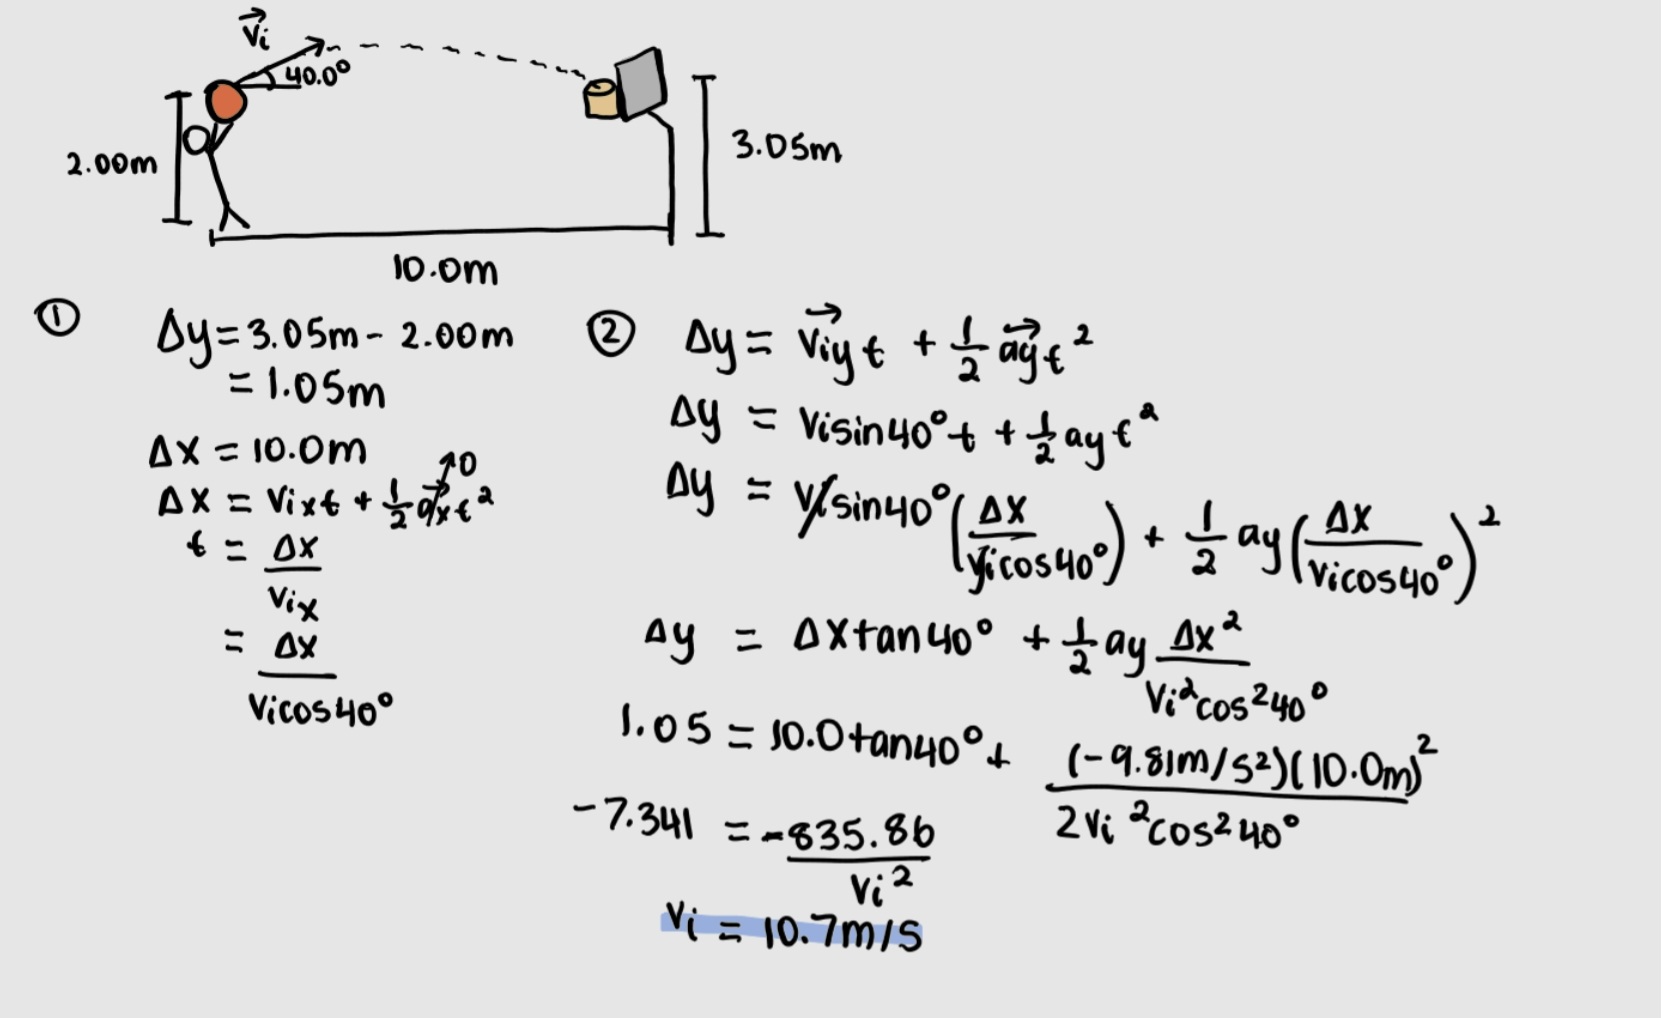 v⃗i
40.0°
2.00m
3.05m
10.0m
①
Δy = 3.05m - 2.00m
= 1.05m
Δx = 10.0m
Δx = vixt + 1/2 a⃗xt² ↗0
t = Δx/vix
= Δx/vicos40°
②
Δy = v⃗iyt + 1/2 a⃗yt²
Δy = visin40°t + 1/2 ayt²
Δy = visin40°(Δx/vicos40°) + 1/2 ay(Δx/vicos40°)²
Δy = Δxtan40° + 1/2 ay Δx²/vi²cos²40°
1.05 = 10.0tan40° + (-9.81m/s²)(10.0m)²/2vi²cos²40°
-7.341 = -835.86/vi²
vi = 10.7m/s